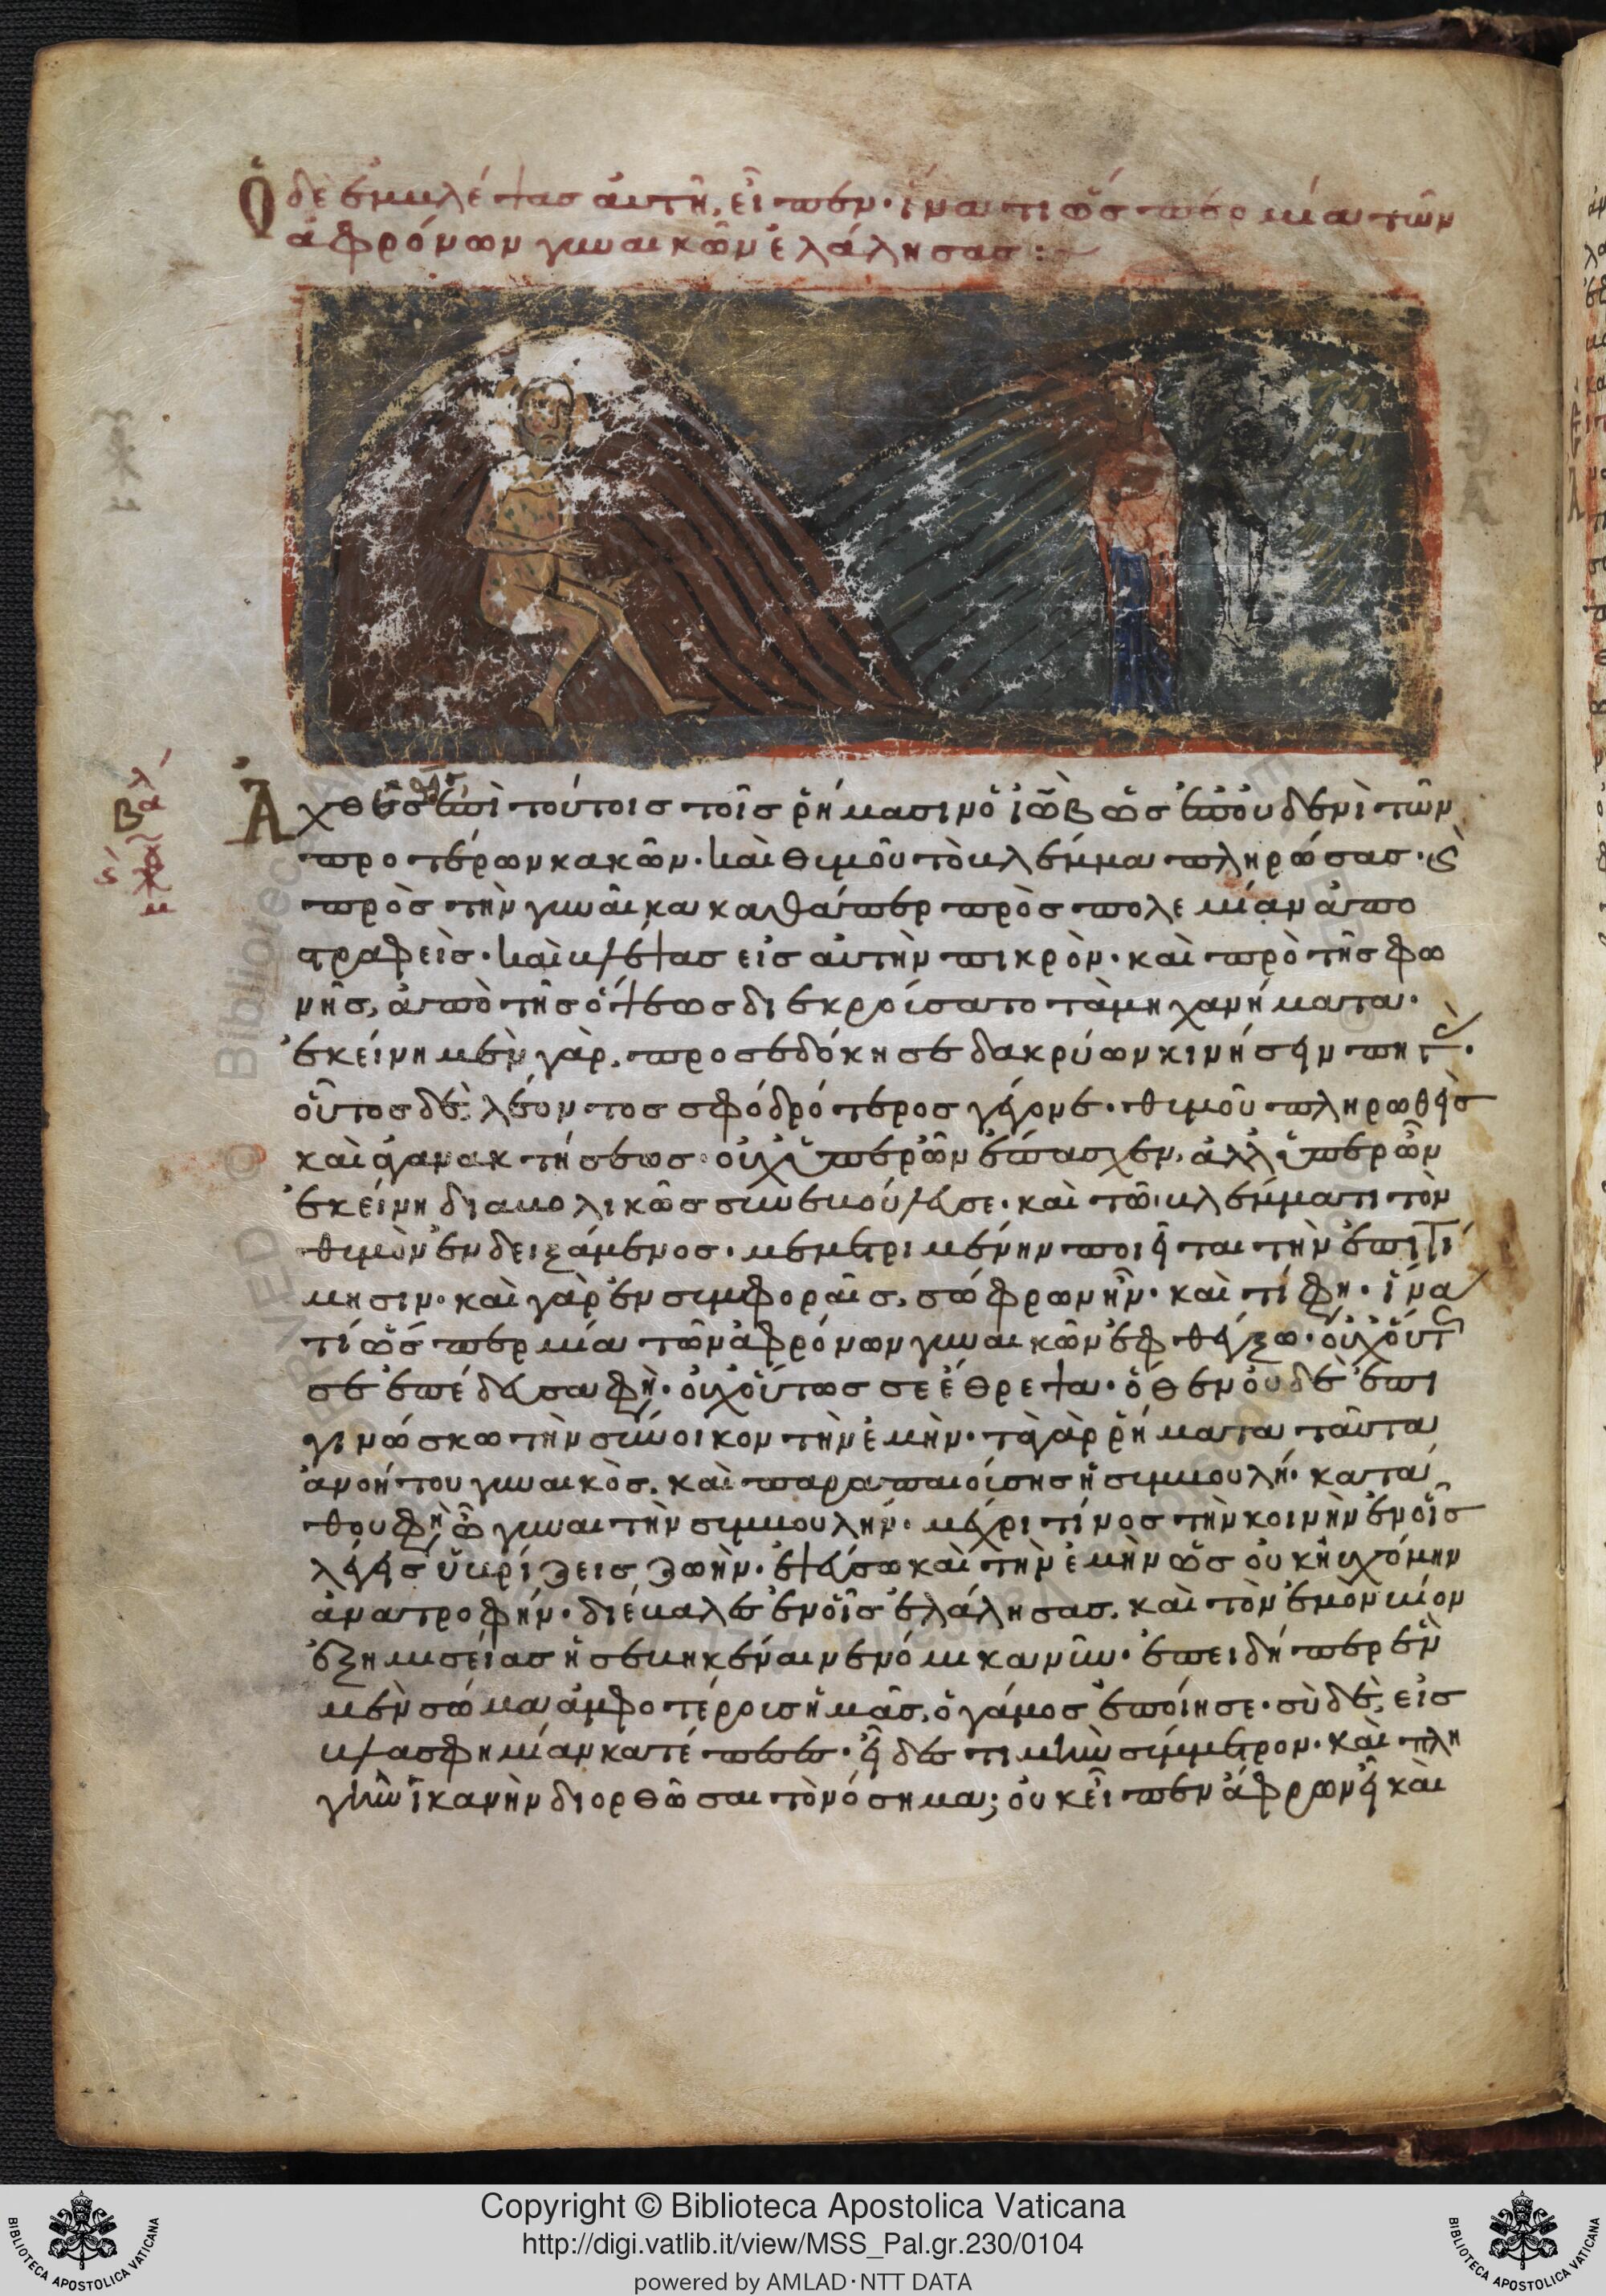 Ὁ δὲ ἐμβλέψας αὐτῆ, εἶπεν· ἵνα τί ὥσπερ μία τῶν
ἀφρόνων γυναικῶν ἐλάλησας :~
Ἀχθεσθεὶς ἐπὶ τούτοις τοῖς ῥήμασιν ὁ ἰὼβ ὡς ἐπ' οὐδενὶ τῶν
προτέρων κακῶν· καὶ θυμοῦ τὸ βλέμμα πληρώσας· καὶ
πρὸς τὴν γυναῖκα καθάπερ πρὸς πολεμίαν ἀπο
στραφεὶς· καὶ βλέψας εἰς αὐτὴν πικρὸν· καὶ πρὸ τῆς φω
νῆς, ἀπὸ τῆς ὄψεως διεκρούσατο τὰ μηχανήματα·
ἐκείνη μὲν γὰρ, προσεδόκησε δακρύων κινήσειν πηγάς·
οὗτος δὲ λέοντος σφοδρότερος γέγονε· θυμοῦ πληρωθεὶς
καὶ ἀγανακτήσεως· οὐχ ὑπὲρ ὧν ἔπασχεν, ἀλλ' ὑπὲρ ὧν
ἐκείνη διαβολικῶς συνεβούλευσε· καὶ τῶ βλέμματι τὸν
θυμὸν ἐνδειξάμενος· μεμετρημένην ποιεῖται τὴν ἐπιτί
μησιν· καὶ γὰρ ἐν συμφοραῖς, σώφρων ἦν· καὶ τί φη· ἵνα
τί ὥσπερ μία τῶν ἀφρόνων γυναικῶν ἐφθέγξω· οὐχ οὕτως
σε ἐπαίδευσα φη· οὐχ οὕτως σε ἔθρεψα· ὅθεν οὐδὲ ἐπι
γινώσκω τὴν σύνοικον τὴν ἐμὴν· τὰ γὰρ ῥήματα ταῦτα
ἀνοήτου γυναικὸς, καὶ παραπαιούσης ἡ συμβουλή· κατά
θου φη, ὦ γύναι τὴν συμβουλήν· μέχρι τίνος τὴν κοινὴν ἐν οἷς
λέγεις ὑβρίζεις ζωὴν· ἐψεύσω καὶ τὴν ἐμὴν ὡς οὐκ ηὐχόμην
ἀναστροφήν· διέβαλες ἐν οἷς ἐλάλησας, καὶ τὸν ἐμὸν βίον
μὲν σῶμα ἀμφοτέρους ἡμᾶς, ὁ γάμος ἐποίησε· σὺ δὲ, εἰς
βλασφημίαν κατέπεσες· εἶδές τινα σύμμετρον· καὶ πλη
γὴν ἱκανὴν διορθῶσαι τὸ νόσημα; οὐκ εἶπεν ἄφρων εἶ καὶ
Copyright © Biblioteca Apostolica Vaticana
http://digi.vatlib.it/view/MSS_Pal.gr.230/0104
powered by AMLAD·NTT DATA
BIBLIOTECA APOSTOLICA VATICANA
BIBLIOTECA APOSTOLICA VATICANA